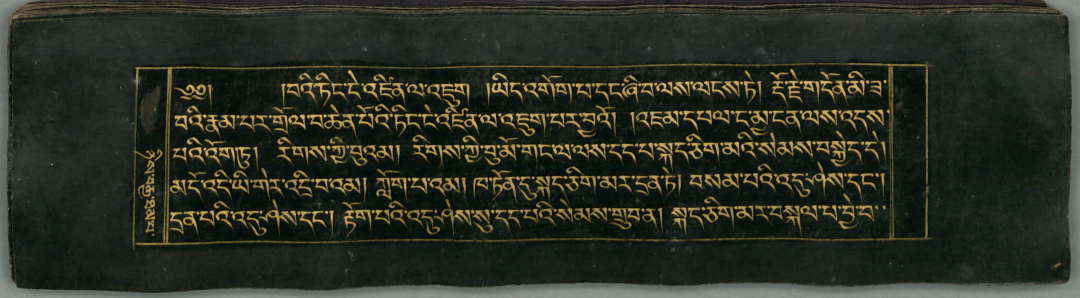 ༄༅། །བའི་ཏིང་ངེ་འཛིན་ལ་འཇུག །ཡིད་འགོག་པ་དང་ཞི་བ་ལས་ལངས་ཏེ། རྡོ་རྗེ་གདོན་མི་ཟ་
བའི་རྣམ་པར་གྲོལ་བ་ཆེན་པོའི་ཏིང་ངེ་འཛིན་ལ་འཇུག་པར་བྱའོ། །འཇམ་དཔལ་ང་མྱ་ངན་ལས་འདས་
པའི་འོག་ཏུ། རིགས་ཀྱི་བུའམ། རིགས་ཀྱི་བུ་མོ་གང་ལ་ལས་དད་པ་སྐད་ཅིག་མའི་སེམས་བསྐྱེད་དེ།
མདོ་འདི་ཡི་གེར་འདྲི་བའམ། ཀློག་པ་འམ། ཁ་ཏོན་དུ་སྐད་ཅིག་མར་དྲན་ཏེ། བསམ་པའི་འདུ་ཤེས་དང་།
དྲན་པའི་འདུ་ཤེས་དང་། རྟོག་པའི་འདུ་ཤེས་སུ་དད་པའི་སེམས་གྲུབ་ན། སྐད་ཅིག་མར་བསྐལ་པ་བྱེ་བ་